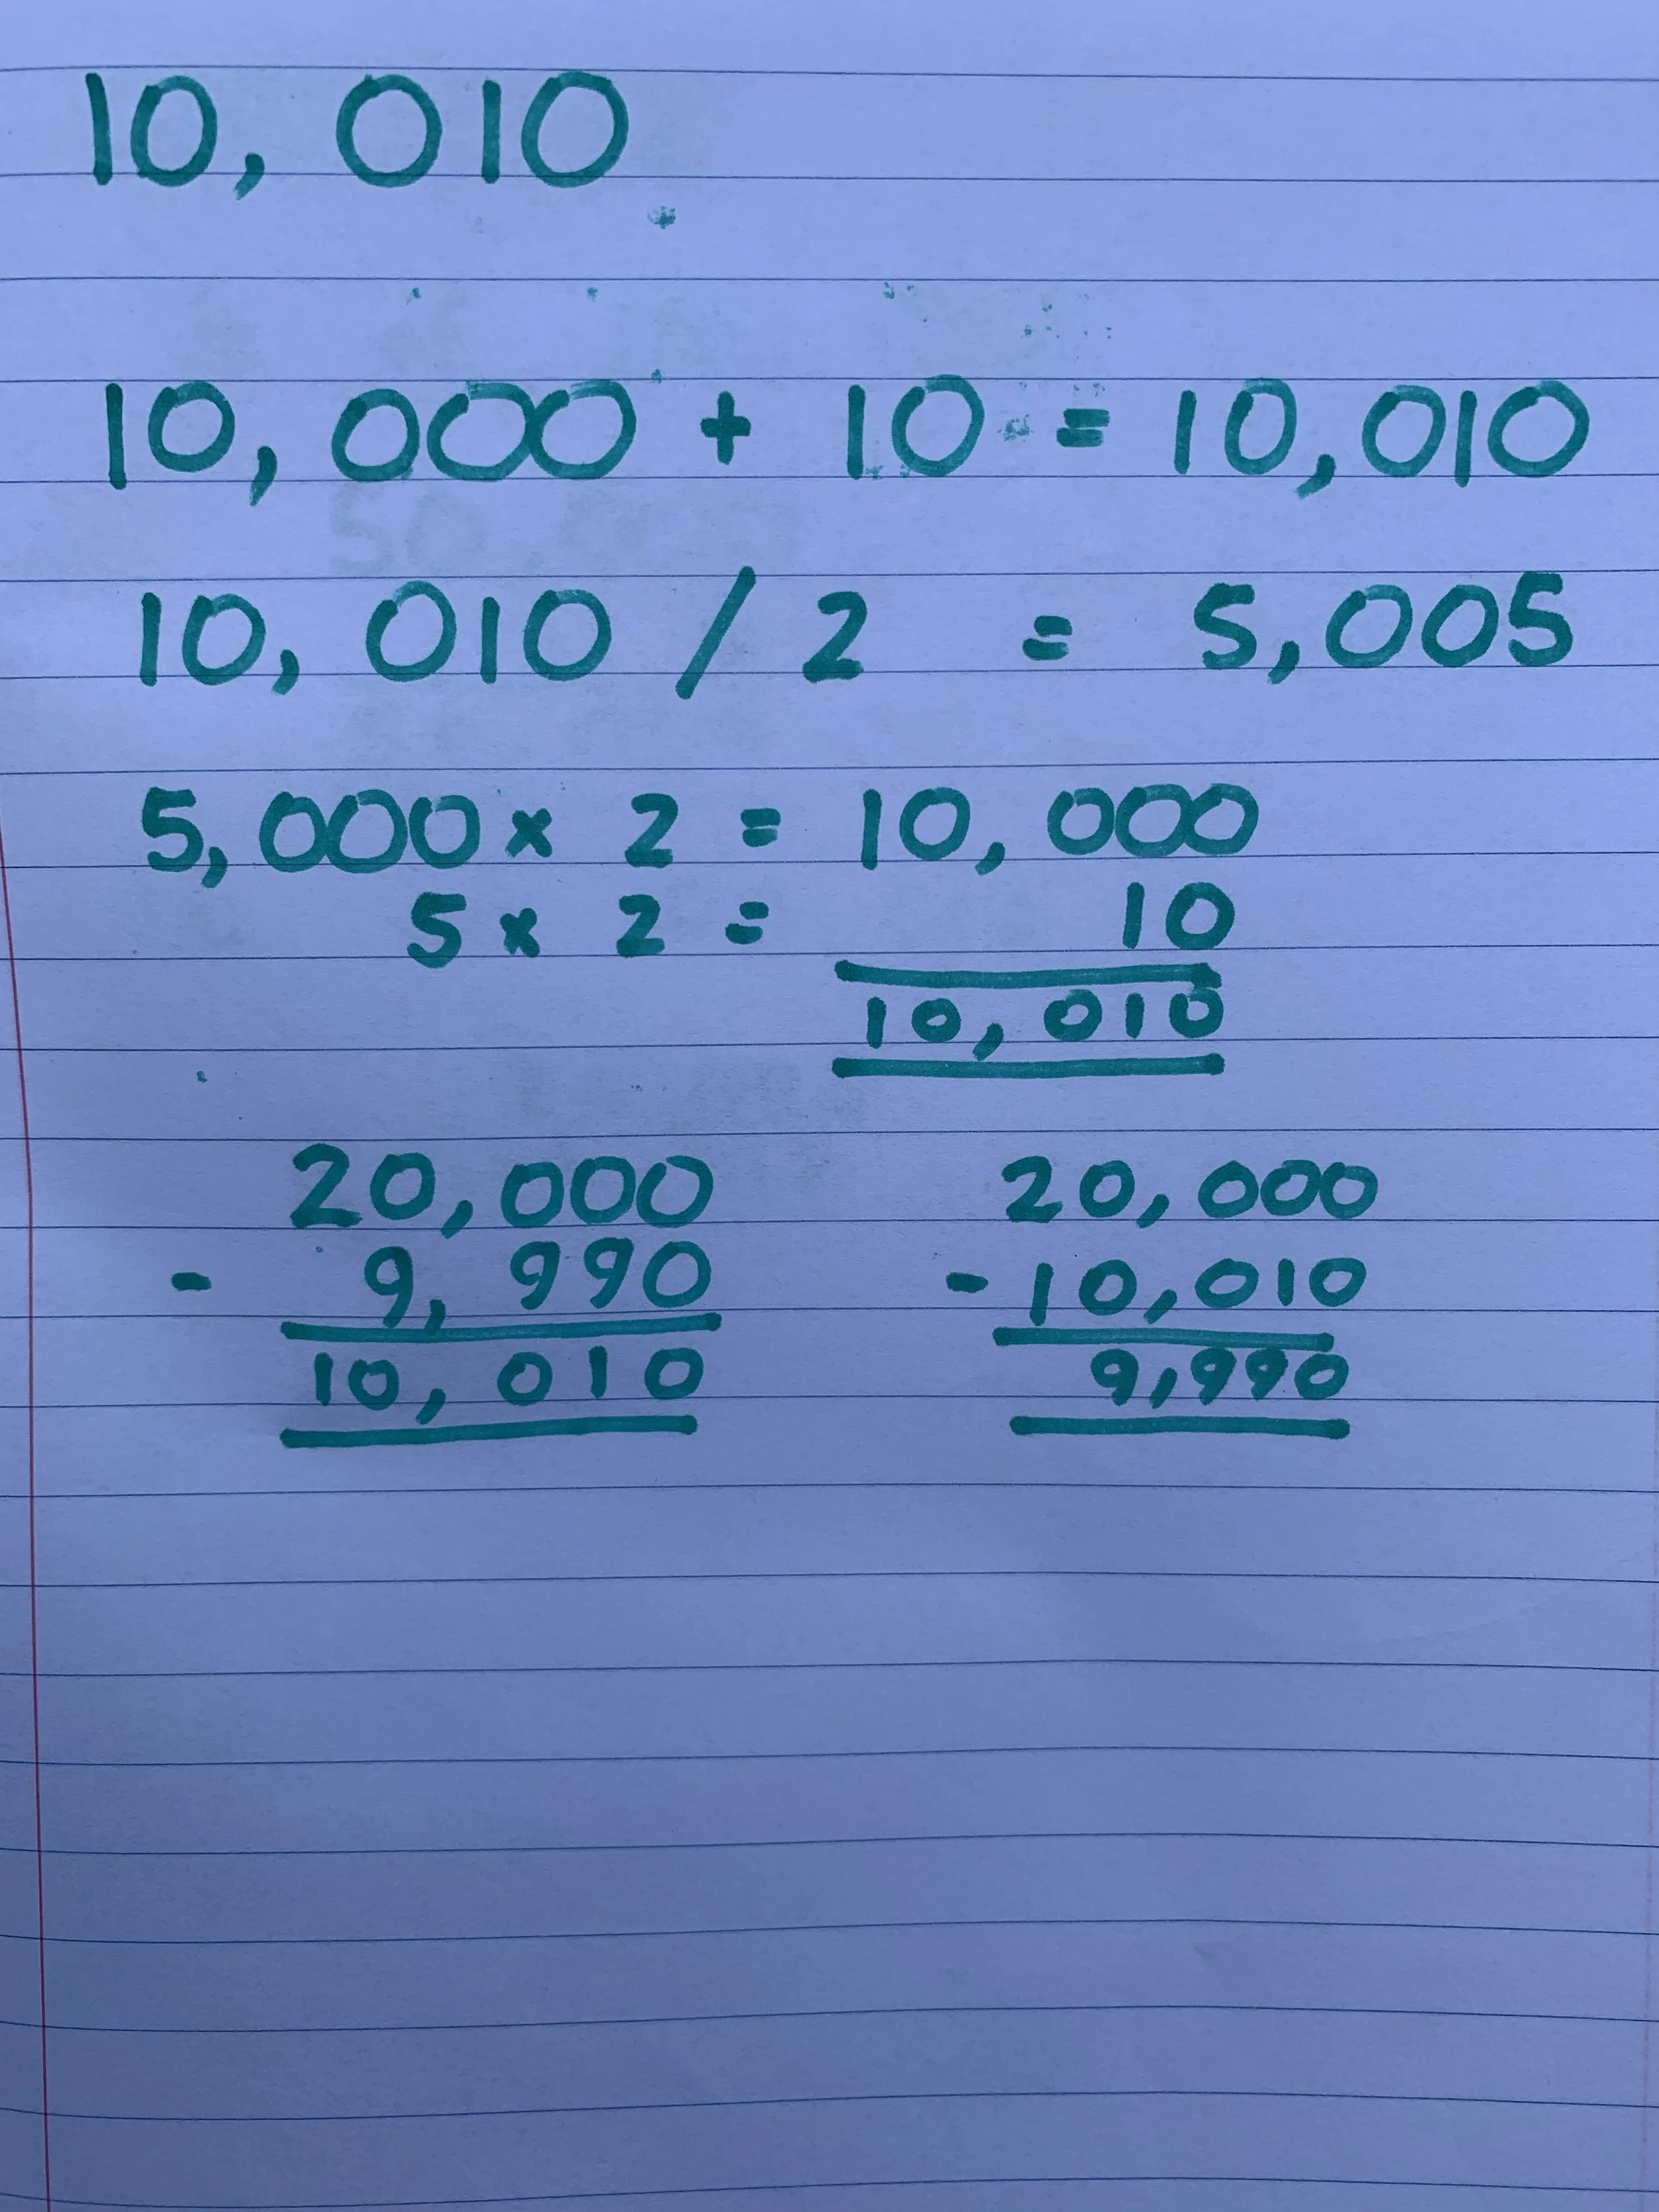 10,010
10,000 + 10 = 10,010
10,010 / 2 = 5,005
5,000 x 2 = 10,000
5 x 2 = 10
10,010
20,000 20,000
- 9,990 - 10,010
10,010 9,990